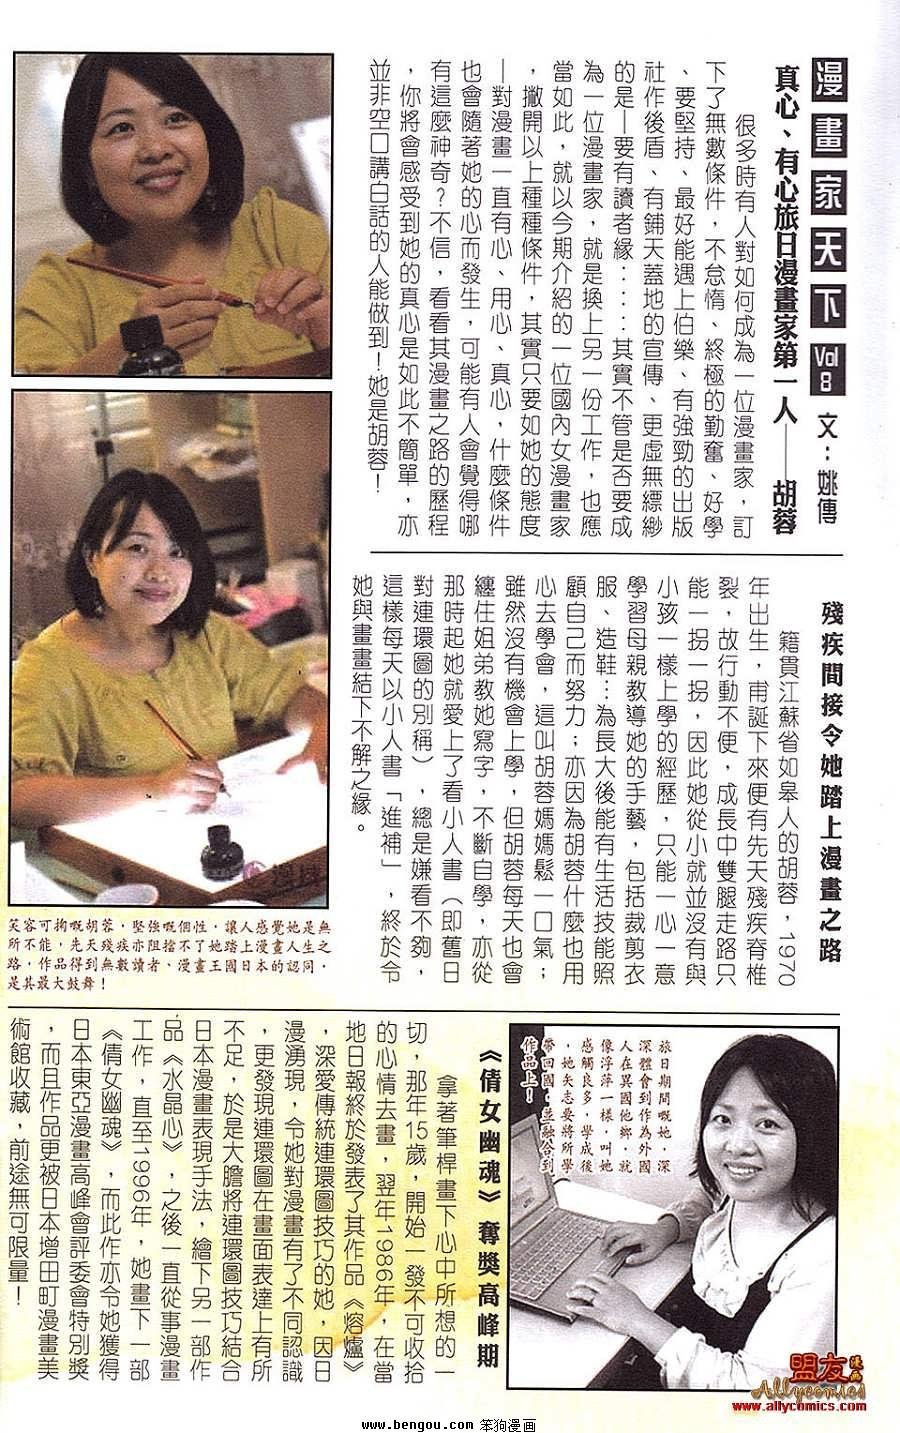 漫畫家天下 Vol 8 文：姚傳
真心、有心旅日漫畫家第一人——胡蓉
很多時有人對如何成為一位漫畫家，訂
下了無數條件，不怠惰、終極的勤奮、好學
、要堅持、最好能遇上伯樂、有強勁的出版
社作後盾、有鋪天蓋地的宣傳、更虛無縹緲
的是—要有讀者緣：：：其實不管是否要成
為一位漫畫家，就是換上另一份工作，也應
當如此，就以今期介紹的一位國內女漫畫家
，撇開以上種種條件，其實只要如她的態度
—對漫畫一直有心、用心、真心，什麼條件
也會隨著她的心而發生，可能有人會覺得哪
有這麼神奇？不信，看看其漫畫之路的歷程
，你將會感受到她的真心是如此不簡單，亦
並非空口講白話的人能做到！她是胡蓉！
殘疾間接令她踏上漫畫之路
籍貫江蘇省如皋人的胡蓉，1970
年出生，甫誕下來便有先天殘疾脊椎
裂，故行動不便，成長中雙腿走路只
能一拐一拐，因此她從小就並沒有與
小孩一樣上學的經歷，只能一心一意
學習母親教導她的手藝，包括裁剪衣
服、造鞋…為長大後能有生活技能照
顧自己而努力；亦因為胡蓉什麼也用
心去學會，這叫胡蓉媽媽鬆一口氣；
雖然沒有機會上學，但胡蓉每天也會
纏住姐弟教她寫字，不斷自學，亦從
那時起她就愛上了看小人書（即舊日
對連環圖的別稱），總是嫌看不夠，
這樣每天以小人書「進補」，終於令
她與畫畫結下不解之緣。
笑容可掬嘅胡蓉，堅強嘅個性，讓人感覺她是無
所不能，先天殘疾亦阻擋不了她踏上漫畫人生之
路，作品得到無數讀者、漫畫王國日本的認同，
是其最大鼓舞！
旅日期間嘅她，深
深體會到作為外國
人在異國他鄉，就
像浮萍一樣，叫她
感觸良多，學成後
，她矢志要將所學
帶回國，並融合到
作品上！
《倩女幽魂》奪獎高峰期
拿著筆桿畫下心中所想的一
切，那年15歲，開始一發不可收拾
的心情去畫，翌年1986年，在當
地日報終於發表了其作品《熔爐》
，深愛傳統連環圖技巧的她，因日
漫湧現，令她對漫畫有了不同認識
，更發現連環圖在畫面表達上有所
不足，於是大膽將連環圖技巧結合
日本漫畫表現手法，繪下另一部作
品《水晶心》，之後一直從事漫畫
工作，直至1996年，她畫下一部
《倩女幽魂》，而此作亦令她獲得
日本東亞漫畫高峰會評委會特別獎
，而且作品更被日本增田町漫畫美
術館收藏，前途無可限量！
盟友漫畫
Allycomics
www.allycomics.com
www.bengou.com 笨狗漫画